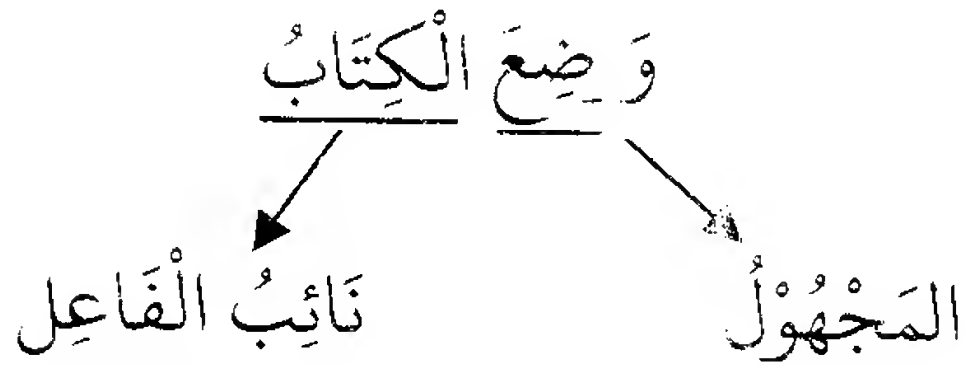 وَ ضِعَ الْكِتَابُ
المَجْهُوْلُ نَائِبُ الْفَاعِل